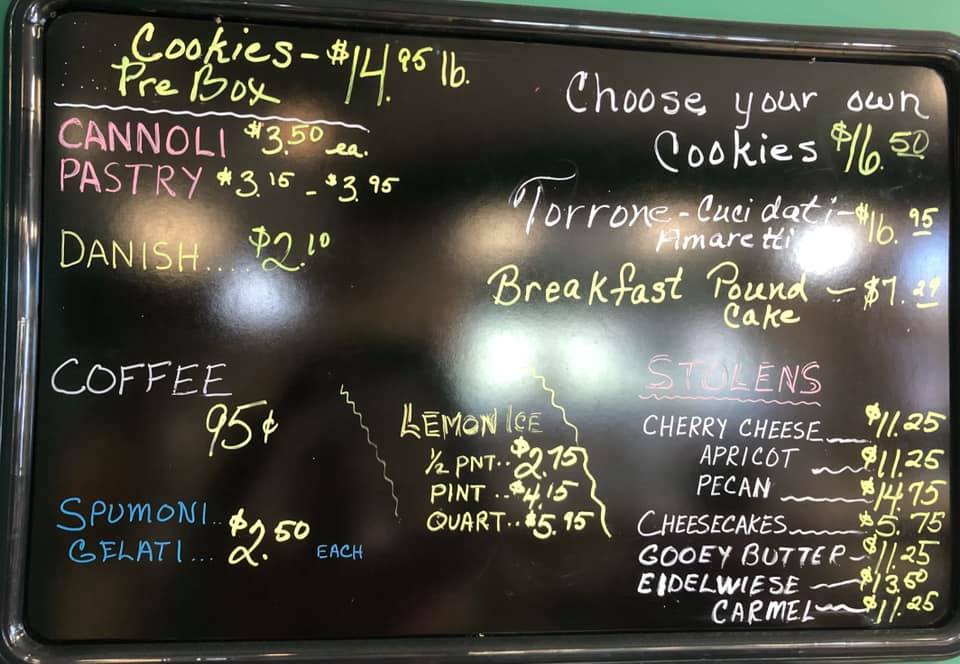 Cookies - $14.95 lb.
Pre Box
CANNOLI $3.50 ea.
PASTRY $3.15 - $3.95
DANISH.... $2.10
Choose your own
Cookies $16.50
Torrone - Cucidati - $16.95
Amaretti
Breakfast Pound - $7.29
Cake
COFFEE
95¢
SPUMONI..
GELATI... $2.50 EACH
LEMON ICE
½ PNT.. $2.75
PINT .. $4.15
QUART.. $5.95
STOLENS
CHERRY CHEESE $11.25
APRICOT $11.25
PECAN $14.75
CHEESECAKES $5.75
GOOEY BUTTER $11.25
EIDELWIESE $13.50
CARMEL $11.25